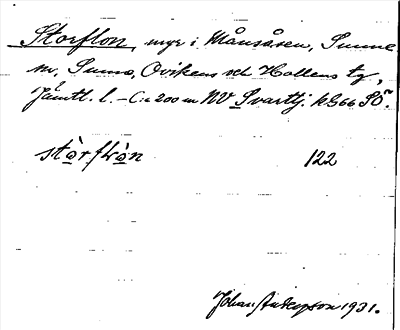 Storflon, myr i Månsåsen, Sunne
sn, Sunne, Ovikens och Hallens tg,
Jämtl. l. – C:a 200 m NV Svarttj. kB66 SÖ.
stòrflòn 122
Johan Anderson 1931.